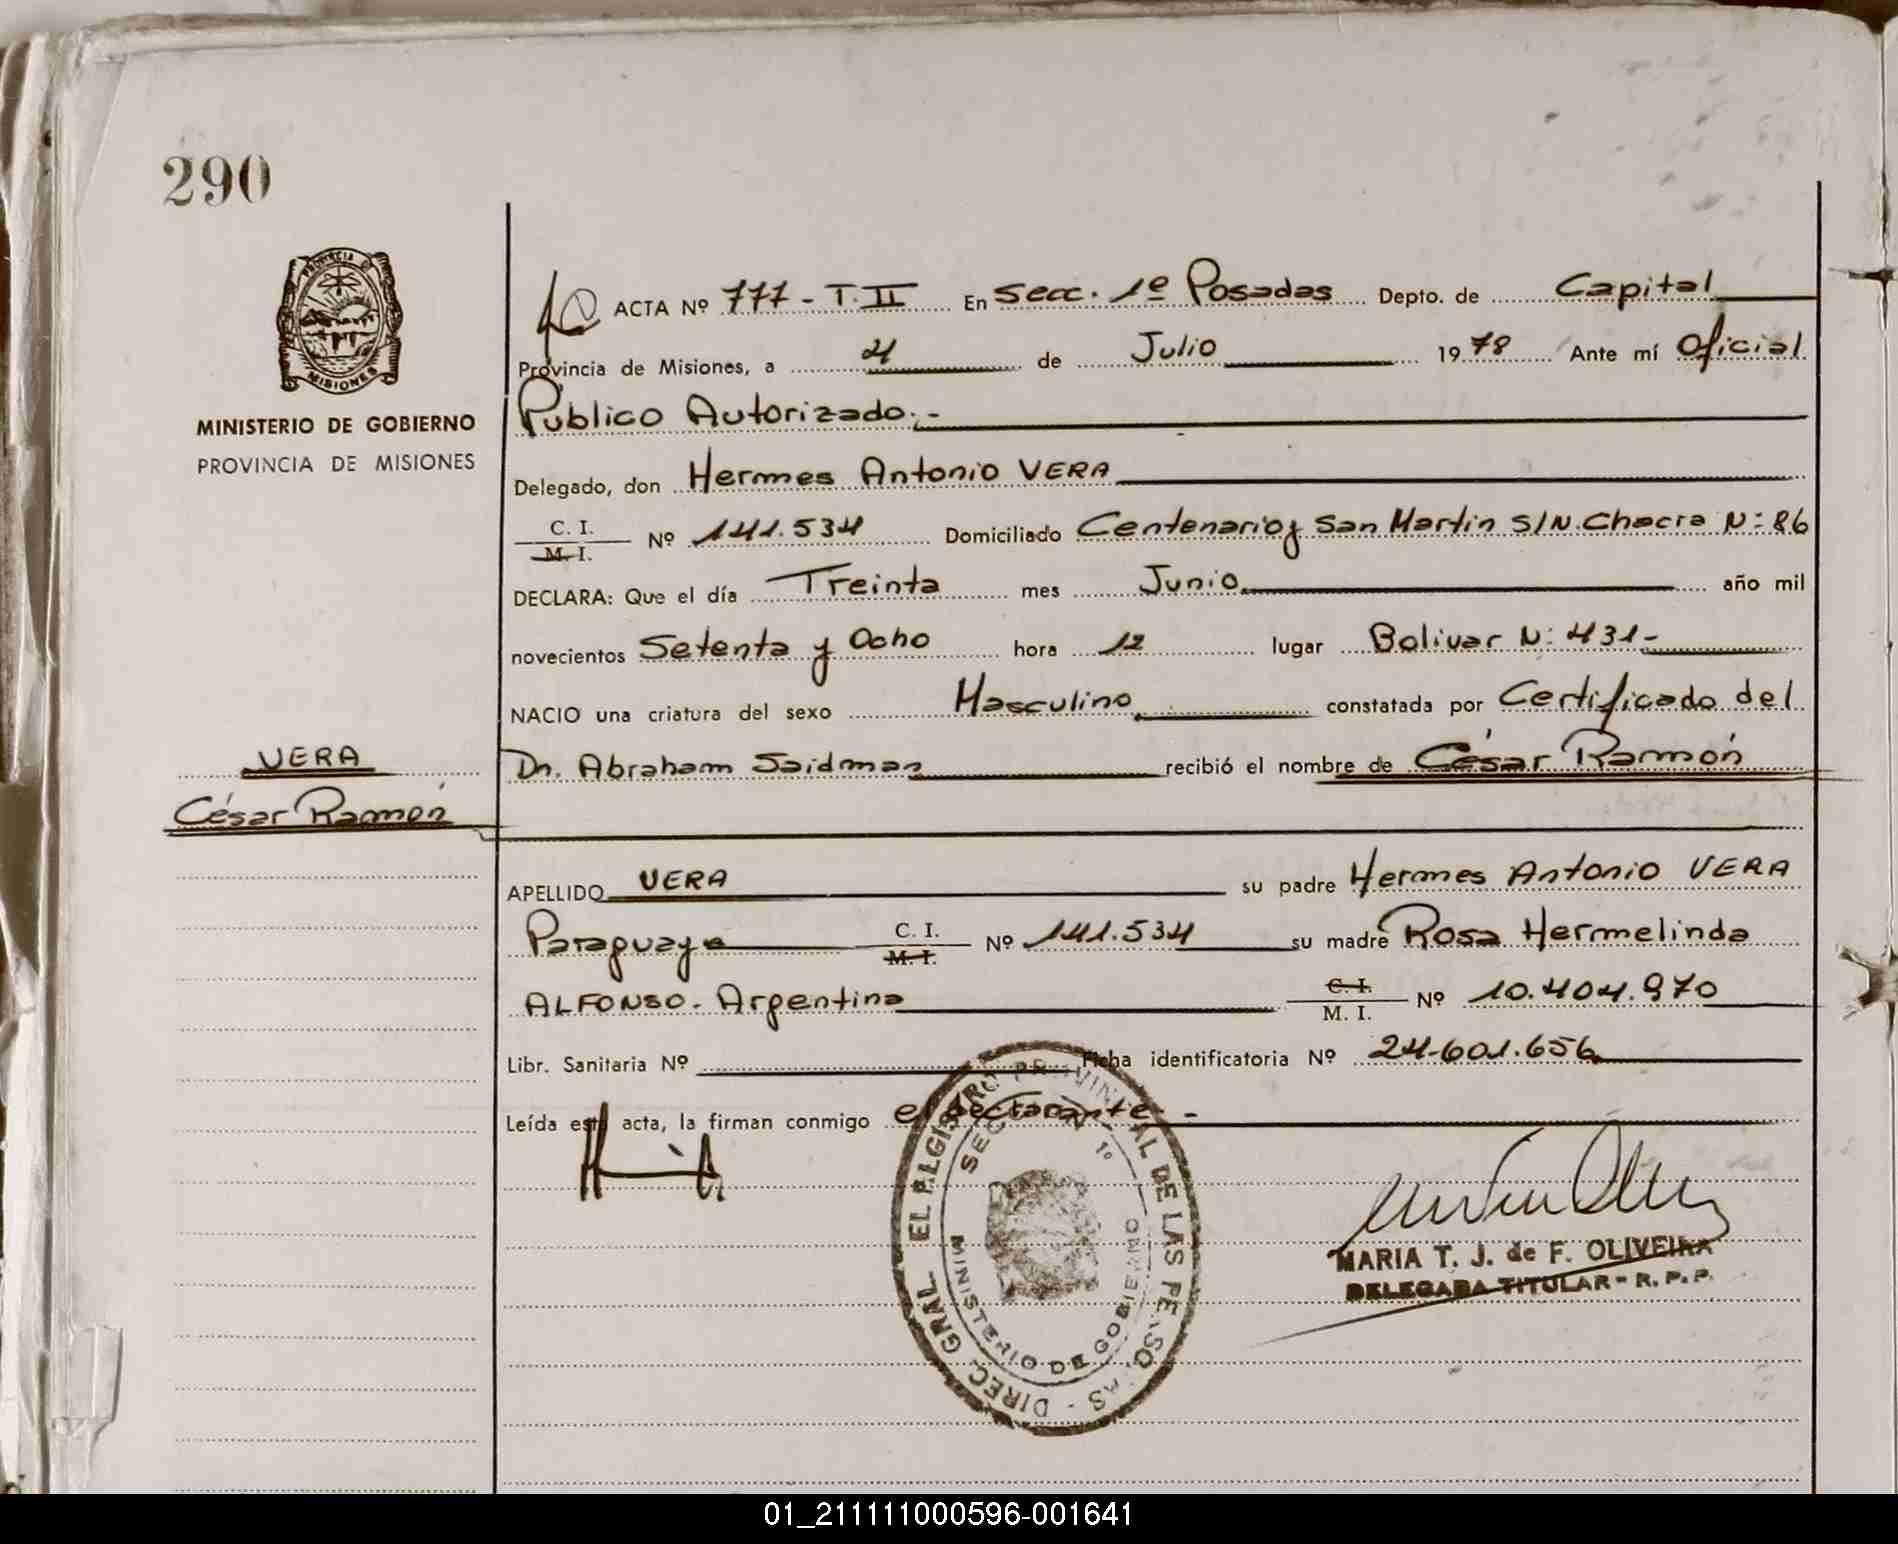 290
PROVINCIA DE
MISIONES
MINISTERIO DE GOBIERNO
PROVINCIA DE MISIONES
ACTA Nº 777 - T. II En Secc. 1º Posadas Depto. de Capital
Provincia de Misiones, a 4 de Julio 1978 Ante mí Oficial
Público Autorizado.-
Delegado, don Hermes Antonio VERA
C. I.
M. I. Nº 141.534 Domiciliado Centenario y San Martin S/N. Chacra N: 86
DECLARA: Que el día Treinta mes Junio año mil
novecientos Setenta y Ocho hora 12 lugar Bolivar N: 431-
NACIO una criatura del sexo Masculino constatada por Certificado del
Dr. Abraham Saidman recibió el nombre de César Ramón
VERA
César Ramón
APELLIDO VERA su padre Hermes Antonio VERA
Paraguaya C. I. M. I. Nº 141.534 su madre Rosa Hermelinda
ALFONSO. Argentina C. I. M. I. Nº 10.404.970
Libr. Sanitaria Nº Ficha identificatoria Nº 24.601.656
Leída esta acta, la firman conmigo el declarante.-
DIREC. GRAL. EL REGISTRO PROVINCIAL DE LAS PERSONAS
SECCION 1º
MINISTERIO DE GOBIERNO
MARIA T. J. de F. OLIVEIRA
DELEGADA TITULAR - R. P. P.
01_211111000596-001641